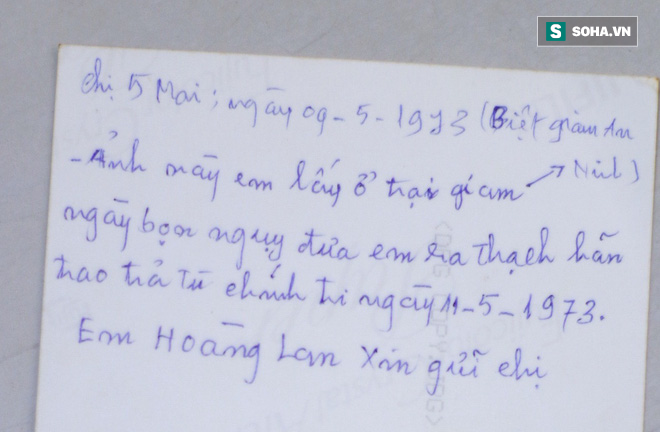 SOHA.VN
Chị 5 Mai; ngày 09-5-1973 (Biệt giam An
Ninh)
-Ảnh này em lấy ở trại giam
ngày bọn ngụy đưa em ra thạch hãn
trao trả tù chính trị ngày 11-5-1973.
Em Hoàng Lan xin gửi chị